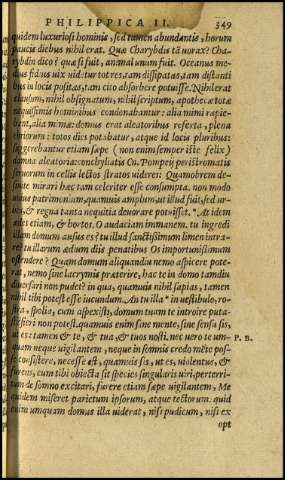 PHILIPPICA II. 349
quidem luxuriosi hominis, sed tamen abundantis, horum
paucis diebus nihil erat. Quæ Charybdis tā uorax? Cha-
rybdin dico? quæ si fuit, animal unum fuit. Oceanus me-
dius fidius uix uidetur tot res, tam dissipatas, tam distanti
bus in locis positas, tam cito absorbere potuisse. Nihil erat
clausum, nihil obsignatum, nihil scriptum, apothecæ totæ
nequissimis hominibus condonabantur: alia mimi rapie-
bant, alia mimæ: domus erat aleatoribus referta, plena
ebriorum: totos dies potabatur, atque id locis pluribus:
suggerebantur etiam sæpe (non enim semper iste felix)
damna aleatoria: conchyliatis Cn. Pompeij peristromatis
seruorum in cellis lectos stratos uideres: Quamobrem de-
sinite mirari hæc tam celeriter esse consumpta. non modo
unius patrimonium, quamuis amplum, ut illud fuit, sed ur-
bes, & regna tanta nequitia deuorare potuisset. * At idem
ædes etiam, & hortos. O audaciam immanem. tu ingredi
illam domum ausus es? tu illud sanctissimum limen intra-
re? tu illarum ædium dijs penatibus Os importunissimum
ostendere? Quam domum aliquandiu nemo aspicere pote-
rat, nemo sine lacrymis præterire, hac te in domo tamdiu
diuersari non pudet? in qua, quamuis nihil sapias, tamen
nihil tibi potest esse iucundum. An tu illa * in uestibulo, ro-
stra, spolia, cum aspexisti, domum tuam te introire puta-
s? fieri non potest. quamuis enim sine mente, sine sensu sis,
ut es: tamen & te, & tua, & tuos nosti. nec uero te um- P. B.
quam neque uigilantem, neque in somnis credo mēte pos-
se cōsistere. necesse est, quamuis sis, ut es, uiolentus, &
furens, cum tibi obiecta sit species singularis uiri, perterri-
tum de somno excitari, furere etiam sæpe uigilantem. Me
quidem miseret parietum ipsorum, atque tectorum. quid
enim umquam domus illa uiderat, nisi pudicum, nisi ex
opt